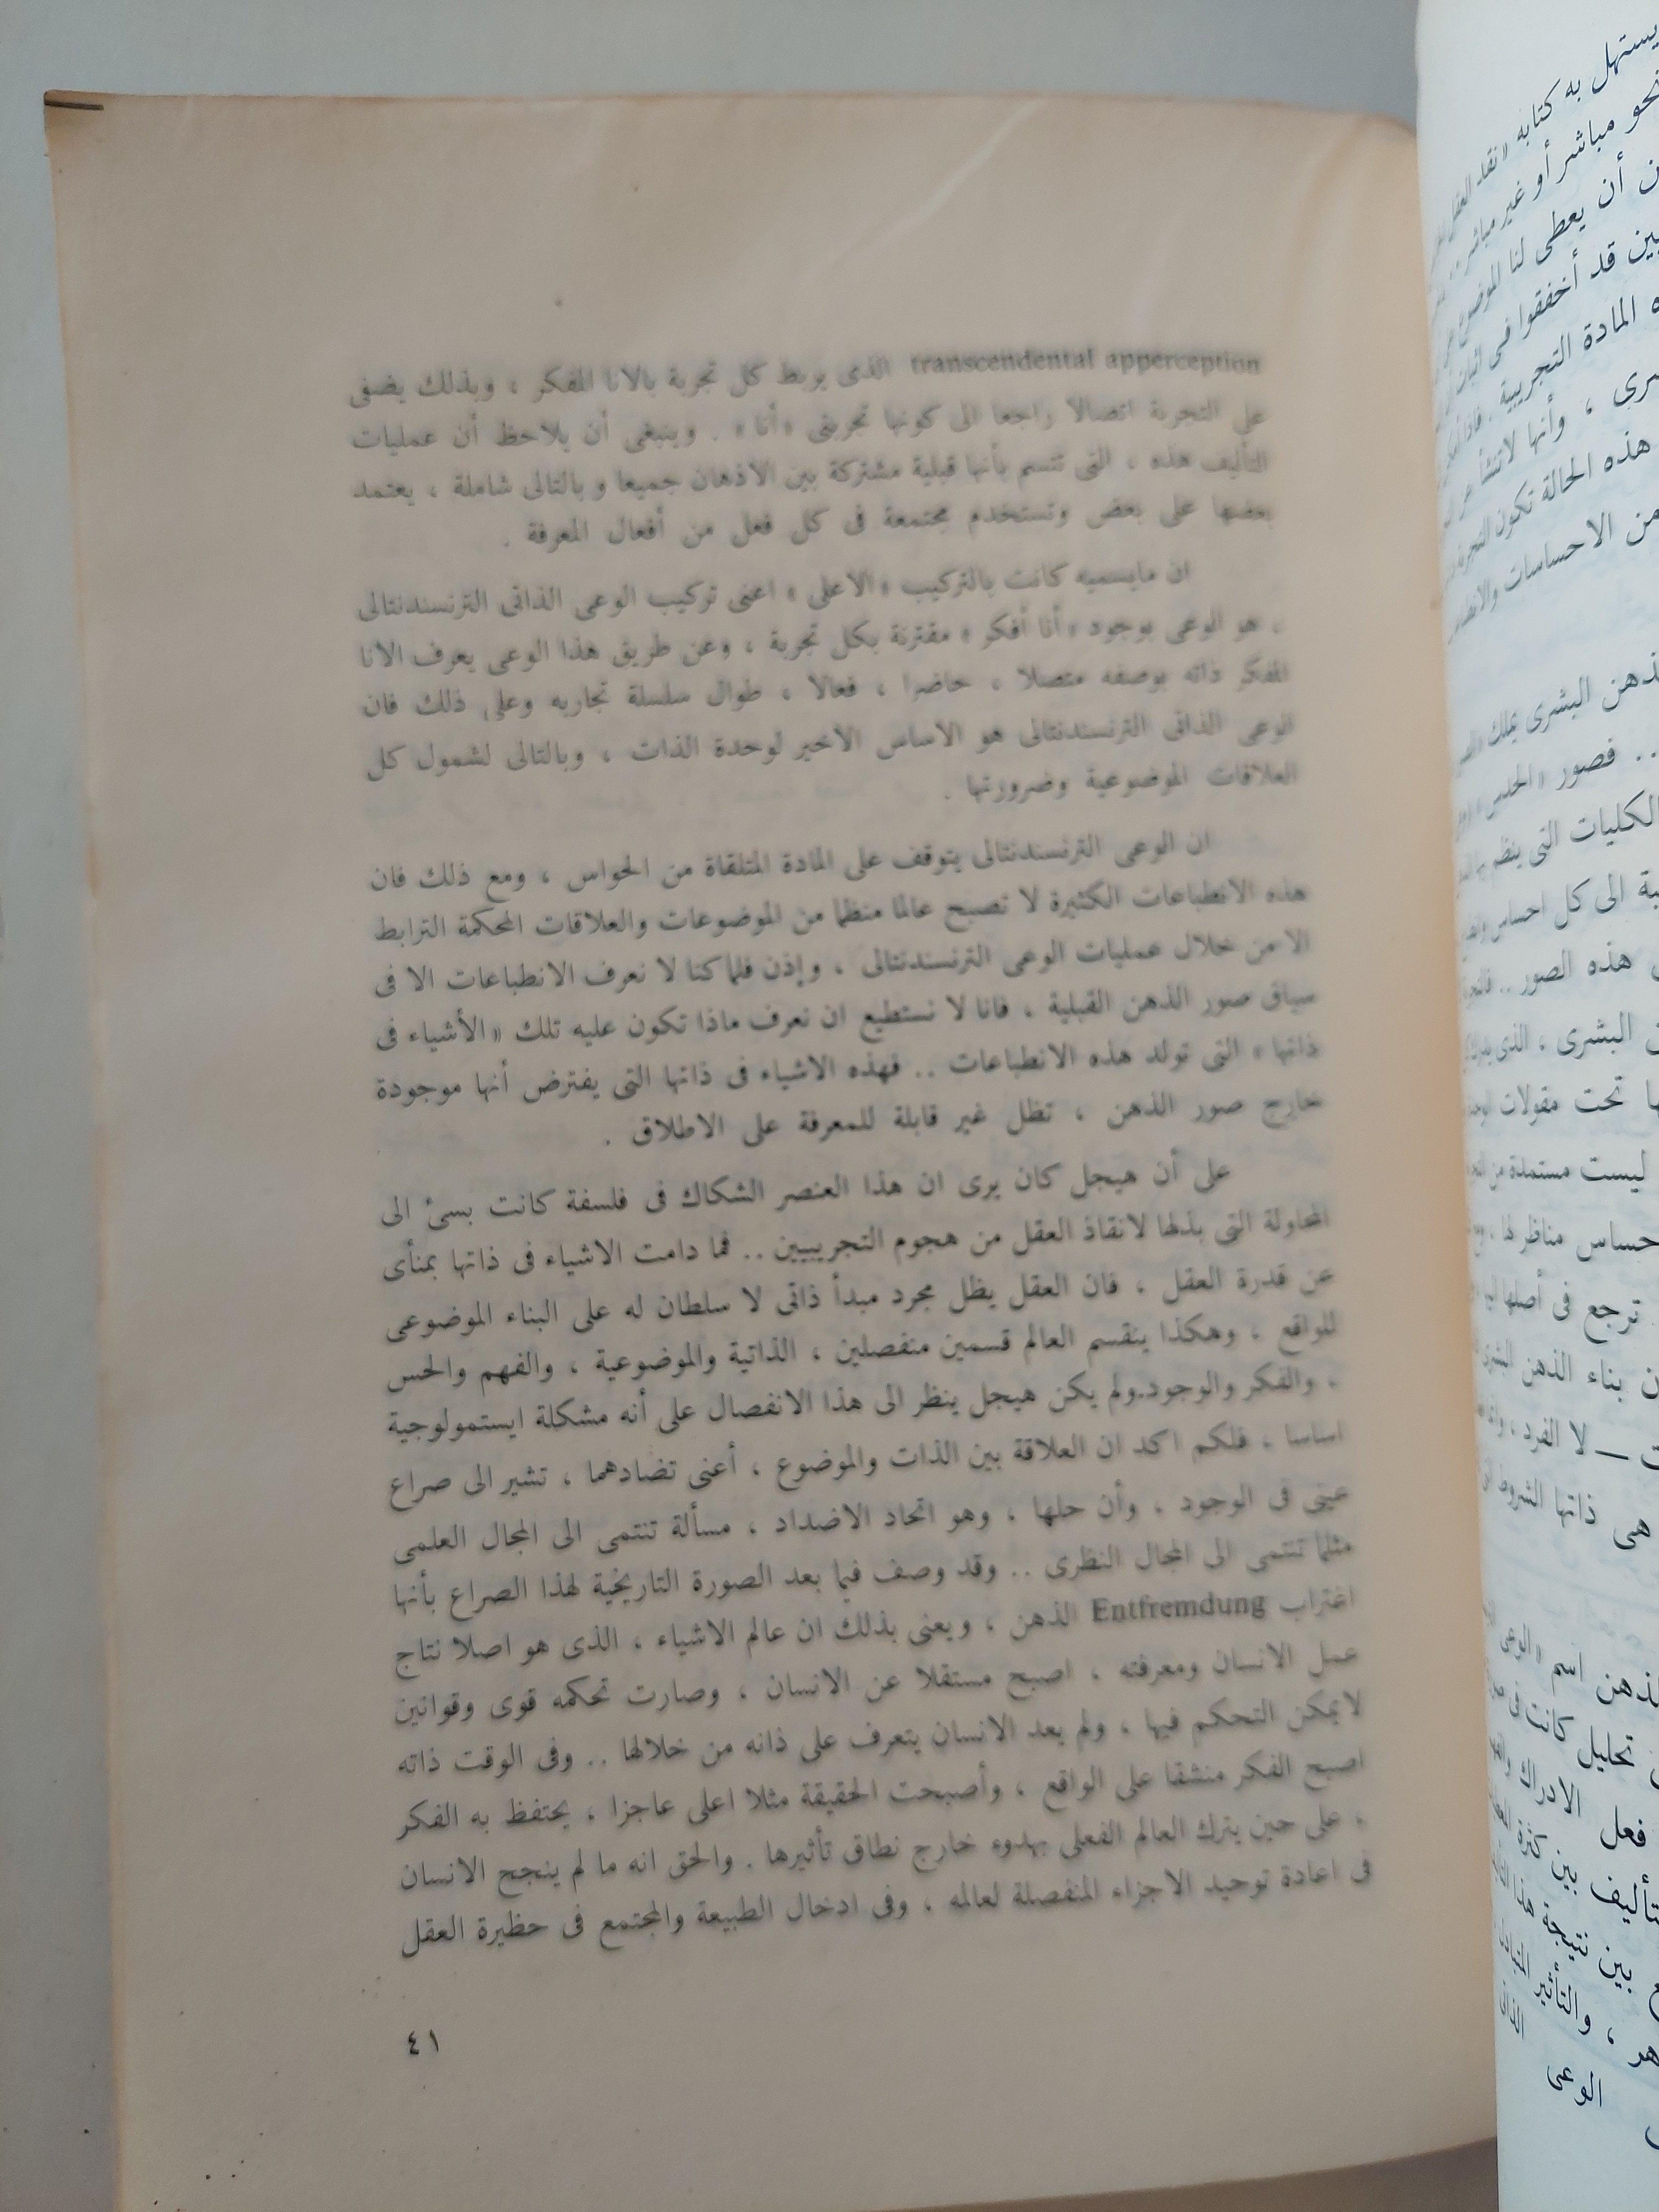 transcendental apperception الذى يربط كل تجربة بالانا المفكر ، وبذلك يضفى
على التجربة اتصالا راجعا الى كونها تجربتى «أنا» . وينبغى أن يلاحظ أن عمليات
التأليف هذه ، التى تتسم بأنها قبلية مشتركة بين الاذهان جميعا و بالتالى شاملة ، يعتمد
بعضها على بعض وتستخدم مجتمعة فى كل فعل من أفعال المعرفة .
ان مايسميه كانت بالتركيب «الاعلى» اعنى تركيب الوعى الذاتى الترنسندنتالى
، هو الوعى بوجود «أنا أفكر» مقترنة بكل تجربة ، وعن طريق هذا الوعى يعرف الانا
المفكر ذاته بوصفه متصلا ، حاضرا ، فعالا ، طوال سلسلة تجاربه وعلى ذلك فان
الوعى الذاتى الترنسندنتالى هو الاساس الاخير لوحدة الذات ، وبالتالى لشمول كل
العلاقات الموضوعية وضرورتها .
ان الوعى الترنسندنتالى يتوقف على المادة المتلقاة من الحواس ، ومع ذلك فان
هذه الانطباعات الكثيرة لا تصبح عالما منظما من الموضوعات والعلاقات المحكمة الترابط
الا من خلال عمليات الوعى الترنسندنتالى ، وإذن فلما كنا لا نعرف الانطباعات الا فى
سياق صور الذهن القبلية ، فانا لا نستطيع ان نعرف ماذا تكون عليه تلك «الأشياء فى
ذاتها» التى تولد هذه الانطباعات .. فهذه الاشياء فى ذاتها التى يفترض أنها موجودة
خارج صور الذهن ، تظل غير قابلة للمعرفة على الاطلاق .
على أن هيجل كان يرى ان هذا العنصر الشكاك فى فلسفة كانت يسئ الى
المحاولة التى بذلها لانقاذ العقل من هجوم التجريبيين .. فما دامت الاشياء فى ذاتها بمنأى
عن قدرة العقل ، فان العقل يظل مجرد مبدأ ذاتى لا سلطان له على البناء الموضوعى
للواقع ، وهكذا ينقسم العالم قسمين منفصلين ، الذاتية والموضوعية ، والفهم والحس
، والفكر والوجود.ولم يكن هيجل ينظر الى هذا الانفصال على أنه مشكلة ايستمولوجية
اساسا ، فلكم اكد ان العلاقة بين الذات والموضوع ، أعنى تضادهما ، تشير الى صراع
عينى فى الوجود ، وأن حلها ، وهو اتحاد الاضداد ، مسألة تنتمى الى المجال العلمى
مثلما تنتمى الى المجال النظرى .. وقد وصف فيما بعد الصورة التاريخية لهذا الصراع بأنها
اغتراب Entfremdung الذهن ، ويعنى بذلك ان عالم الاشياء ، الذى هو اصلا نتاج
عمل الانسان ومعرفته ، اصبح مستقلا عن الانسان ، وصارت تحكمه قوى وقوانين
لايمكن التحكم فيها ، ولم يعد الانسان يتعرف على ذاته من خلالها .. وفى الوقت ذاته
اصبح الفكر منشقا على الواقع ، وأصبحت الحقيقة مثلا اعلى عاجزا ، يحتفظ به الفكر
، على حين يترك العالم الفعلى بهدوء خارج نطاق تأثيرها . والحق انه ما لم ينجح الانسان
فى اعادة توحيد الاجزاء المنفصلة لعالمه ، وفى ادخال الطبيعة والمجتمع فى حظيرة العقل
٤١
يستهل به كتابه «نقد العقل
نحو مباشر أو غير مباشر ..
أن يعطى لنا الموضوع
قد أخفقوا فى اثبات
المادة التجريبية .
، وأنها لاتنشأ عن
هذه الحالة تكون
من الاحساسات
البشرى يملك
.. فصور «الحدس»
الكليات التى ينظم
الى كل احساس
هذه الصور ..
البشرى ، الذى
تحت مقولات
ليست مستمدة من
مناظر لها ،
ترجع فى أصلها
بناء الذهن البشرى
— لا الفرد ،
هى ذاتها الشروط
اسم «الوعى
تحليل كانت فى
فعل الادراك
بين كثرة
بين نتيجة هذا
، والتأثير المتبادل
الوعى